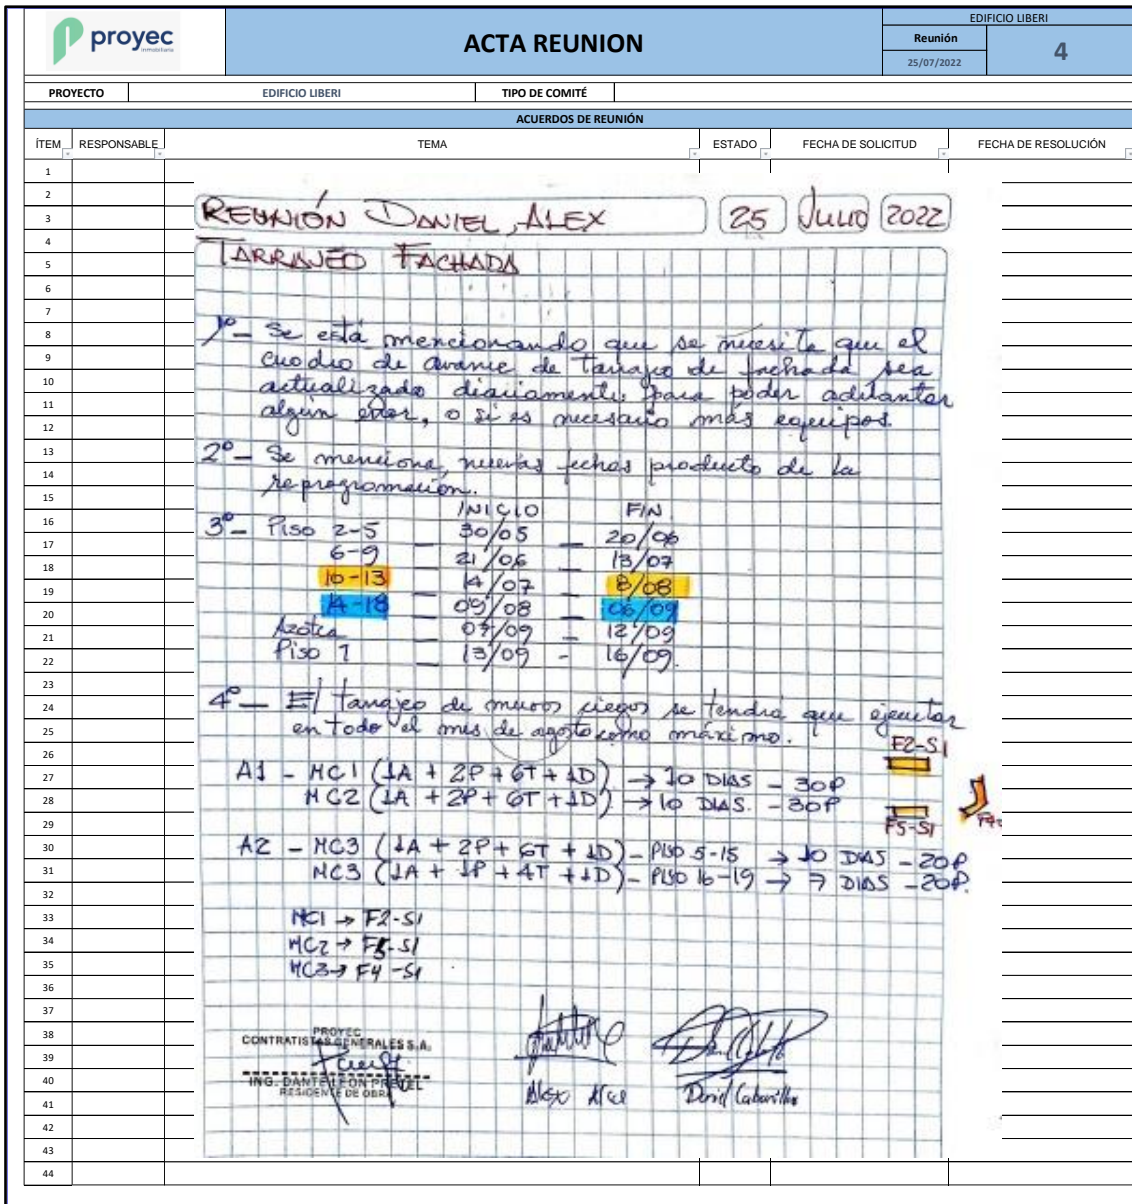 proyec
inmobiliaria
ACTA REUNION
EDIFICIO LIBERI
Reunión
4
25/07/2022
PROYECTO EDIFICIO LIBERI TIPO DE COMITÉ
ACUERDOS DE REUNIÓN
ÍTEM RESPONSABLE TEMA ESTADO FECHA DE SOLICITUD FECHA DE RESOLUCIÓN
1
2
3
4
5
6
7
8
9
10
11
12
13
14
15
16
17
18
19
20
21
22
23
24
25
26
27
28
29
30
31
32
33
34
35
36
37
38
39
40
41
42
43
44
REUNIÓN DANIEL, ALEX 25 JULIO 2022
TARRAJEO FACHADA
1º- Se está mencionando que se necesita que el
cuadro de avance de tarrajeo de fachada sea
actualizado diariamente para poder adelantar
algún error, o si es necesario más equipos.
2º- Se menciona, nuevas fechas producto de la
reprogramación.
INICIO FIN
3º- Piso 2-5 30/05 - 20/06
6-9 - 21/06 - 13/07
10-13 - 14/07 8/08
14-18 - 09/08 06/09
Azotea - 07/09 - 12/09
Piso 1 - 13/09 - 16/09.
4º- El tarrajeo de muros ciegos se tendrá que ejecutar
en todo el mes de agosto como máximo.
F2-S1
A1 - MC1 (1A + 2P + 6T + 1D) → 10 DIAS - 30P
MC2 (1A + 2P + 6T + 1D) → 10 DIAS. - 30P
F5-S1
A2 - MC3 (1A + 2P + 6T + 1D) - PISO 5-15 → 10 DIAS - 20P
MC3 (1A + 1P + 4T + 1D) - PISO 16-19 → 7 DIAS - 20P.
MC1 → F2-S1
MC2 → F5-S1
MC3 → F4-S1
PROYEC
CONTRATISTAS GENERALES S.A.
ING. DANTE LEON PRETEL
RESIDENTE DE OBRA
Alex